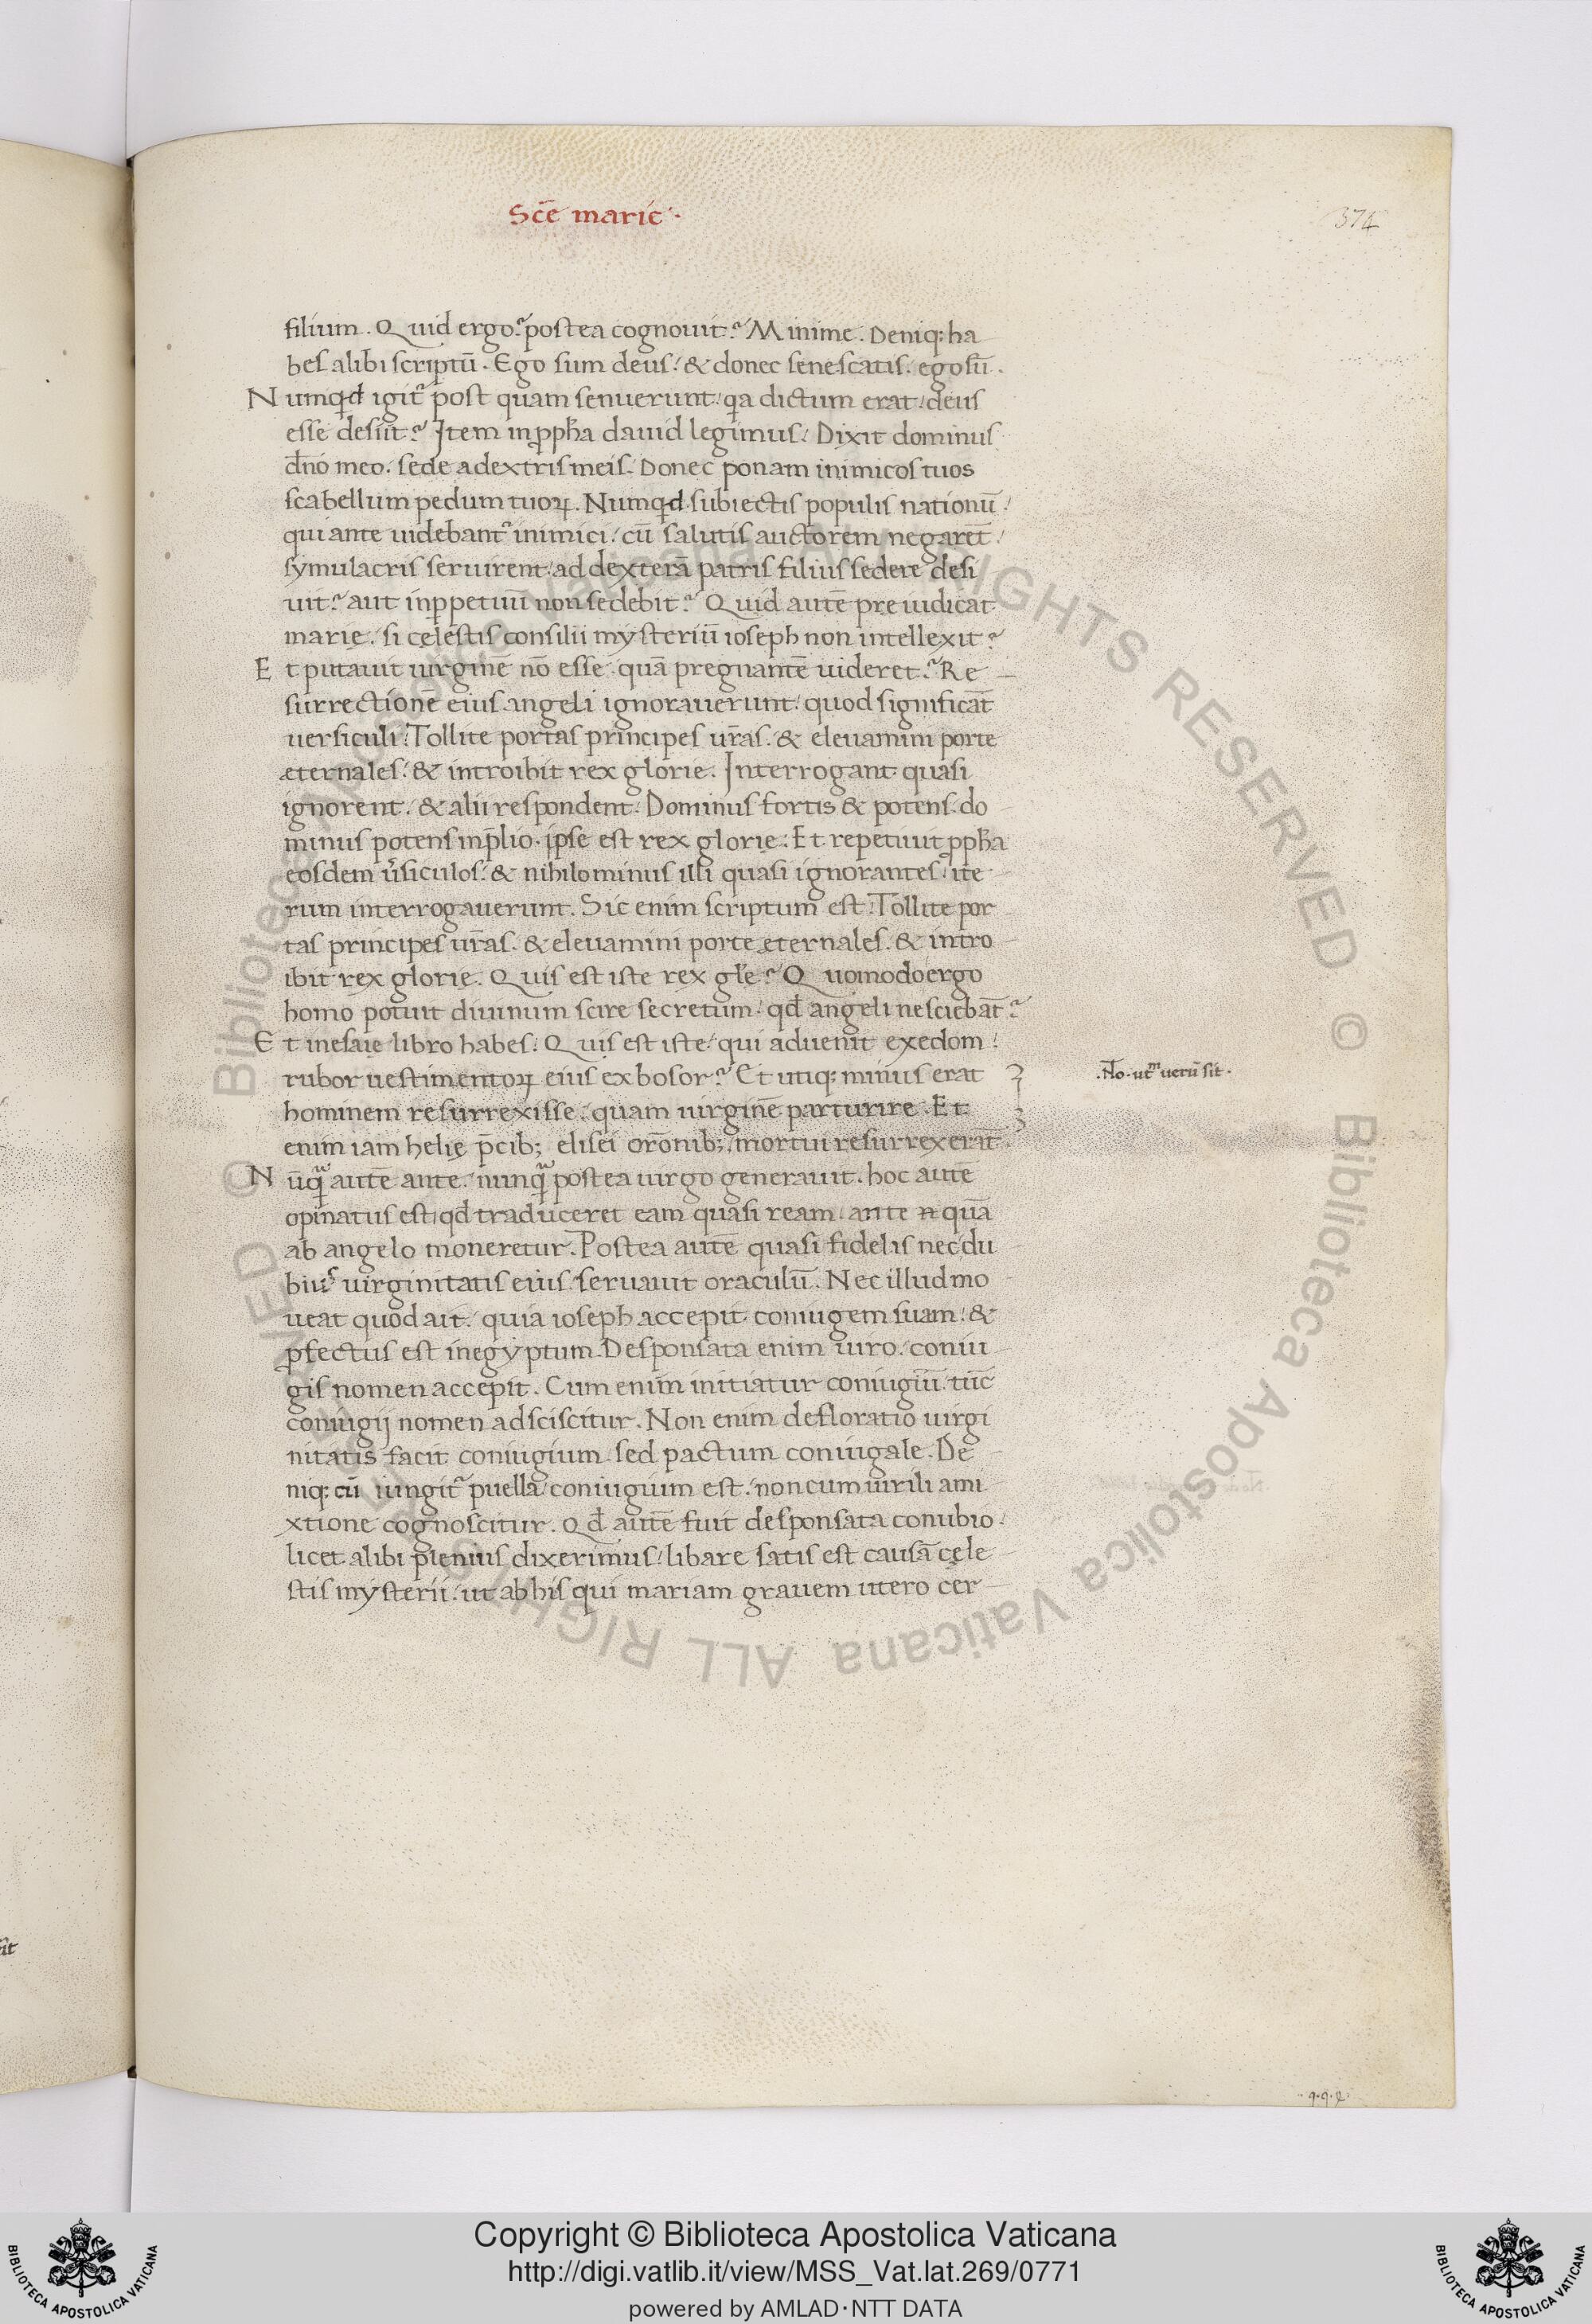 Sc̄e marię·
374
filium. Quid ergo? postea cognouit? Minime. Deniq; ha
bes alibi scriptū. Ego sum deus: & donec senescatis. ego sū.
Numqͥd igit᷑ post quam senuerunt: qͥa dictum erat: deus
esse desiit? Item in ꝓph̄a dauid legimus: Dixit dominus
dn̄o meo. sede adextris meis. Donec ponam inimicos tuos
scabellum pedum tuoꝝ. Numqͥd subiectis populis nationū:
qui ante uidebant᷑ inimici: cū salutis auctorem negarēt:
symulacris seruirent: ad dexterā patris filius sedere desi
uit? aut inꝑpetuū non sedebit? Quid autē pre iudicat
marię. si cęlestis consilii mysteriū ioseph non intellexit?
Et putauit uirginē nō esse. quā pregnantē uideret? Re
surrectionē eius angeli ignorauerunt: quod significāt
uersiculi: Tollite portas principes ur̄as. & eleuamini porte
æternales: & introibit rex glorie. Interrogant quasi
ignorent. & alii respondent: Dominus fortis & potens. do
minus potens inp̄lio. ipse est rex glorię: Et repetiuit ꝓph̄a
eosdem ūsiculos: & nihilominus illi quasi ignorantes: ite
rum interrogauerunt. Sic enim scriptum est: Tollite por
tas principes ur̄as. & eleuamini porte æternales. & intro
ibit rex glorię. Quis est iste rex gl̄e? Quomodo ergo
homo potuit diuinum scire secretum. qd̄ angeli nesciebāt?
Et inesaie libro habes: Quis est iste: qui aduenit exedom:
rubor uestimentoꝝ eius ex bosor? Et utiq; minus erat
.No. utͫ uerū sit.
hominem resurrexisse: quam uirginē parturire. Et
enim iam helię p̄cib; elisei orōnib; mortui resurrexerāt.
Nūqͣ̄ autē ante: nunqͣ̄ postea uirgo generauit. hoc autē
opinatus est: qd̄ traduceret eam quasi ream: ante n quā
ab angelo moneretur. Postea autē quasi fidelis nec du
biuˢ uirginitatis eius seruauit oraculū. Nec illud mo
ueat quod ait: quia ioseph accepit coniugem suam: &
ꝓfectus est inegyptum. Desponsata enim uiro: coniu
gis nomen accepit. Cum enim initiatur coniugiū. tūc
coniugij nomen adsciscitur. Non enim defloratio uirgi
nitatis facit coniugium. sed pactum coniugale. De
niq; cū iungit᷑ puella: coniugium est: non cum uirili ami
xtione cognoscitur. Qd̄ autē fuit desponsata conubio.
licet alibi plenius dixerimus: libare satis est causā cęle
stis mysterii: ut ab his qui mariam grauem utero cer
Copyright © Biblioteca Apostolica Vaticana
http://digi.vatlib.it/view/MSS_Vat.lat.269/0771
powered by AMLAD·NTT DATA
BIBLIOTECA APOSTOLICA VATICANA
BIBLIOTECA APOSTOLICA VATICANA
© Biblioteca Apostolica Vaticana ALL RIGHTS RESERVED © Biblioteca Apostolica Vaticana ALL RIGHTS RESERVED